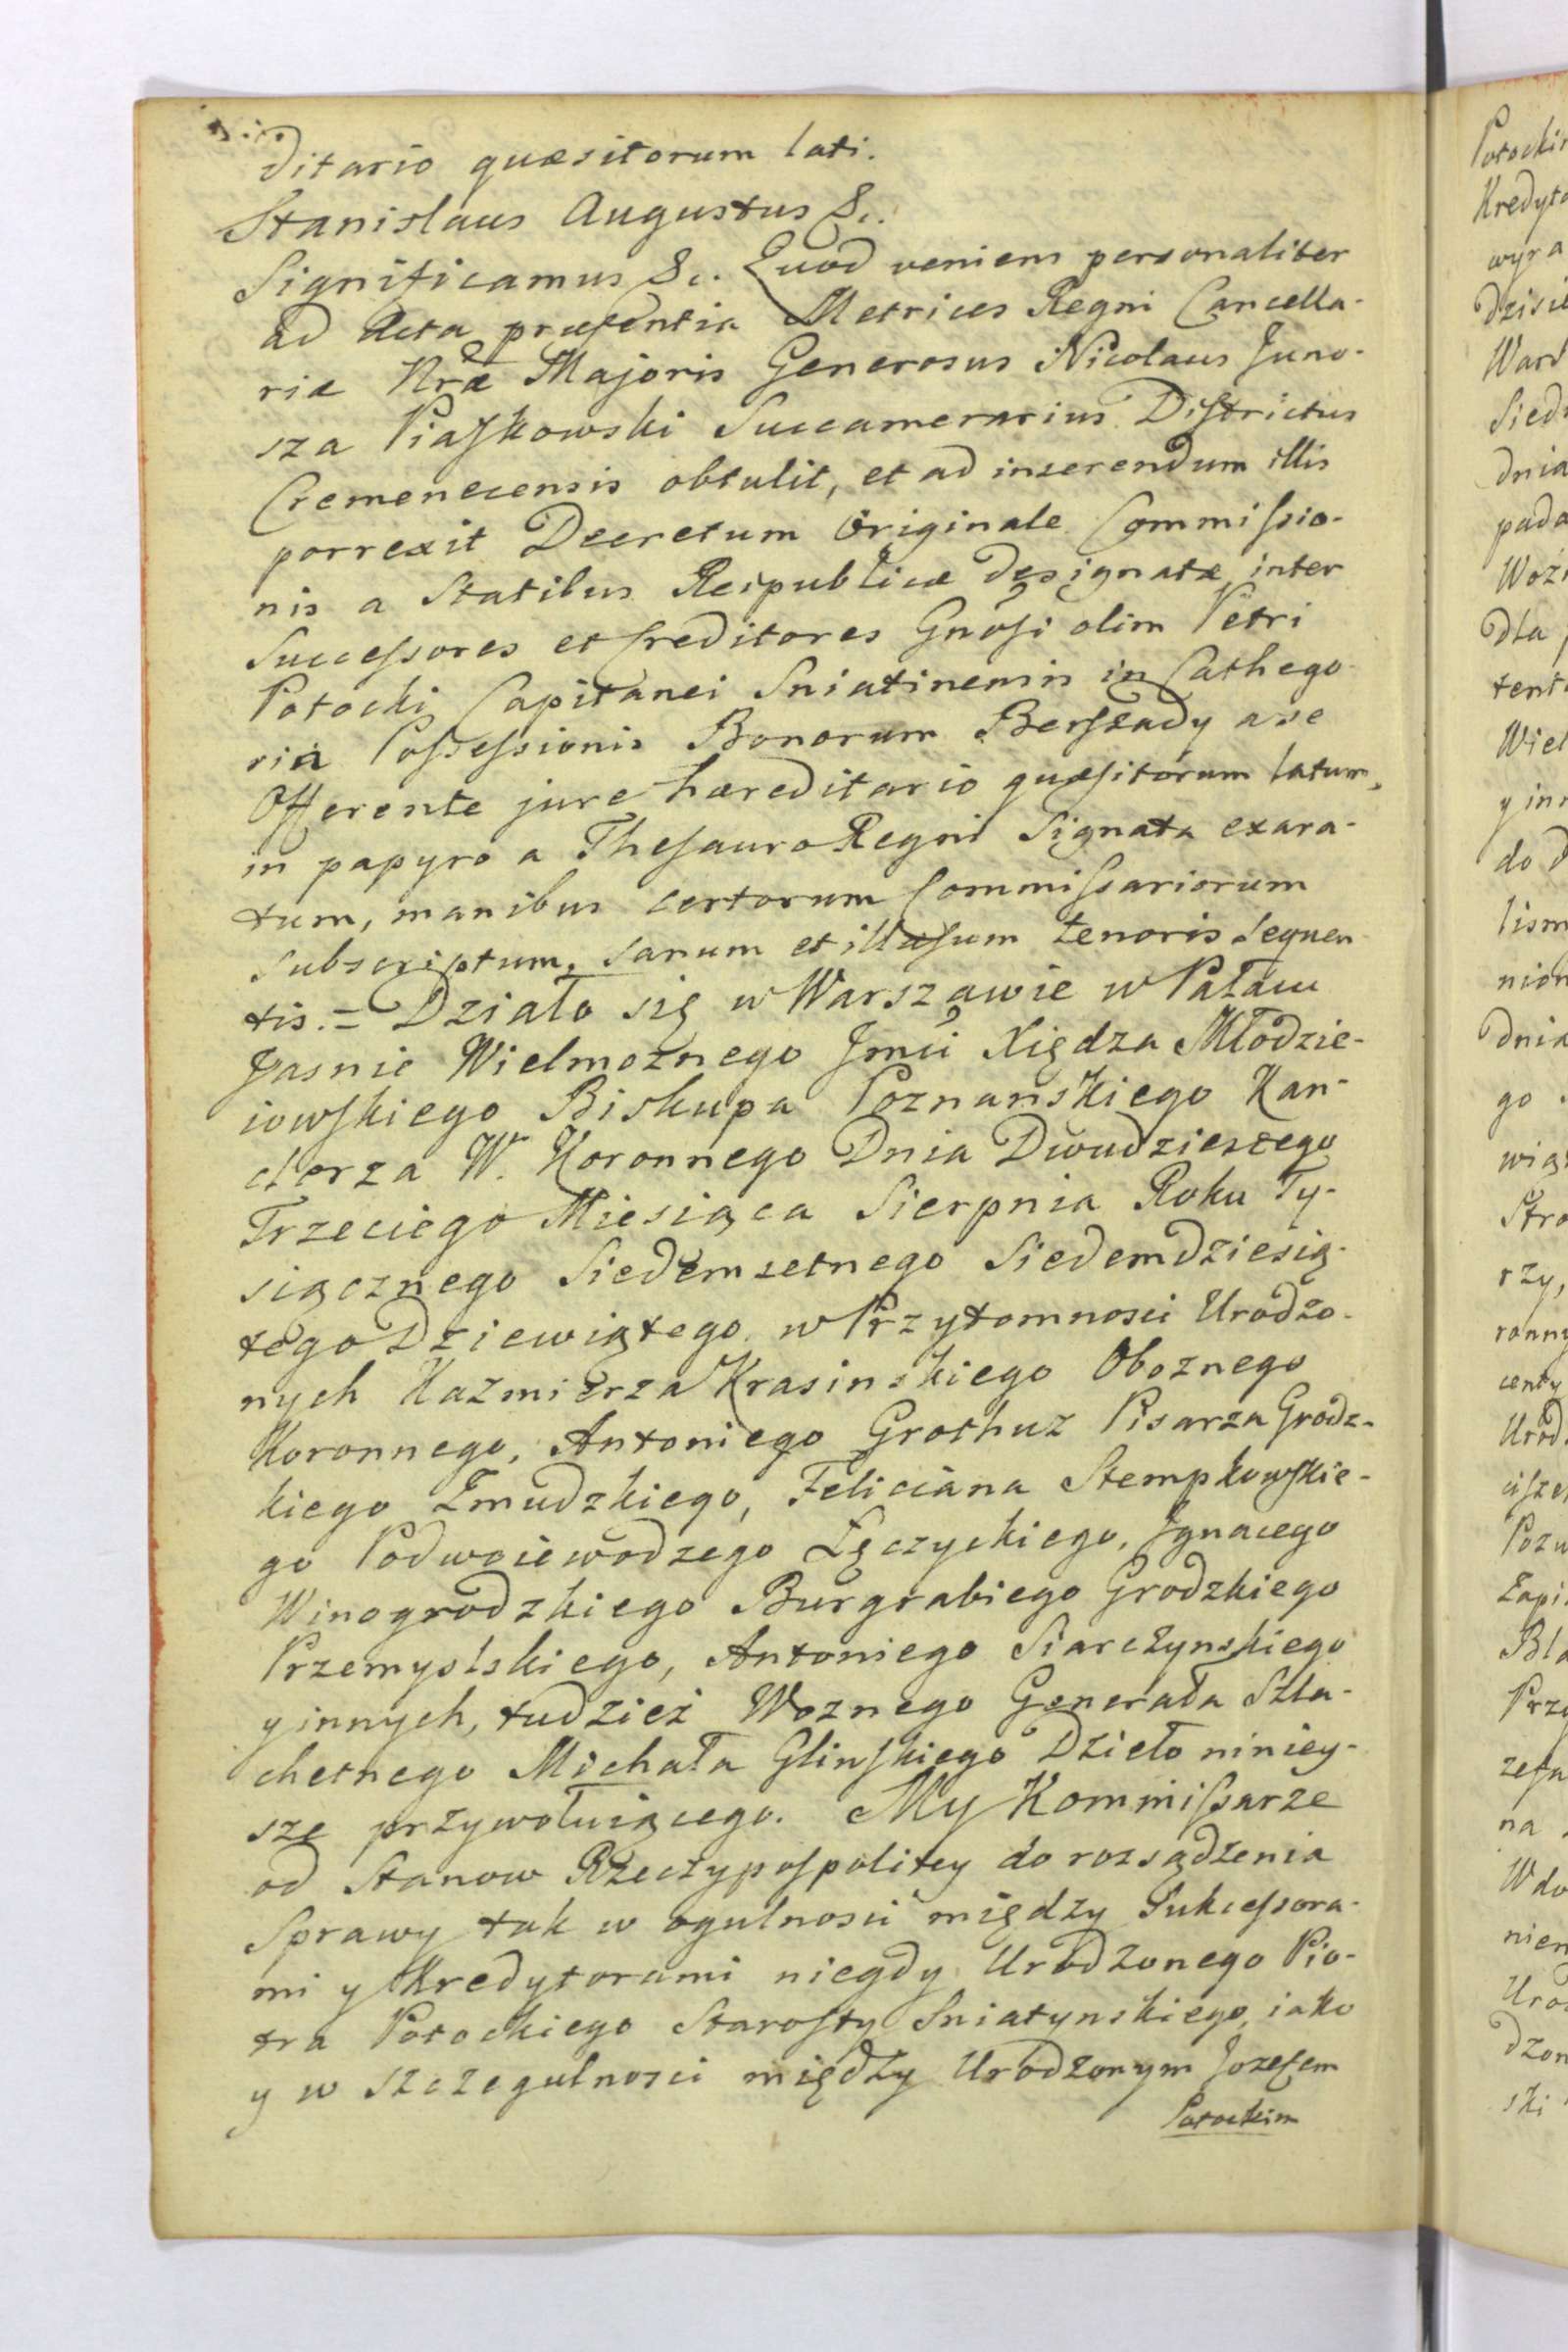 ditario quæsitorum lati.
Stanislaus Augustus &c.
Significamus &c. Quod veniens personaliter
ad Acta præsentia Metrices Regni Cancella-
riæ Nræ Majoris Generosus Nicolaus Juno-
sza Piaskowski Succamerarius Districtus
Cremenecensis obtulit, et ad inserendum illis
porrexit Decretum Originale Commissio-
nis a Statibus Reipublicæ designatæ inter
Successores et Creditores Gnosi olim Petri
Potocki Capitanei Sniatinensis in Cathego-
ria Possessionis Bonorum Berszady a se
Offerente jure hæreditario quæsitorum latum,
in papyro a Thesauro Regni Signata exara-
tum, manibus certorum Commissariorum
subscriptum, sanum et illæsum tenoris sequen-
tis. = Działo się w Warszawie w Pałacu
Jasnie Wielmoznego Jmci Xiędza Młodzie-
iowskiego Biskupa Poznanskiego Kan-
clerza W. Koronnego Dnia Dwudziestego
Trzeciego Miesiąca Sierpnia Roku Ty-
siącznego Siedemsetnego Siedemdziesią-
tego Dziewiątego w Przytomnosci Urodzo-
nych Kazmierza Krasinskiego Oboznego
Koronnego, Antoniego Grothuz Pisarza Grodz-
kiego Zmudzkiego, Feliciana Stempkowskie-
go Podwoiewodzego Łęczyckiego, Jgnacego
Winogrodzkiego Burgrabiego Grodzkiego
Przemyslskiego, Antoniego Siarczynskiego
y innych, tudzież Woznego Generała Szla-
chetnego Michała Glinskiego Dzieło niniey-
sze przywołuiącego. My Kommissarze
od Stanow Rzeczypospolitey do rozsądzenia
Sprawy tak w ogulnosci między Sukcessora-
mi y Kredytorami niegdy Urodzonego Pio-
tra Potockiego Starosty Sniatynskiego, iako
y w szczegulnosci między Urodzonym Jozefem
Potockim